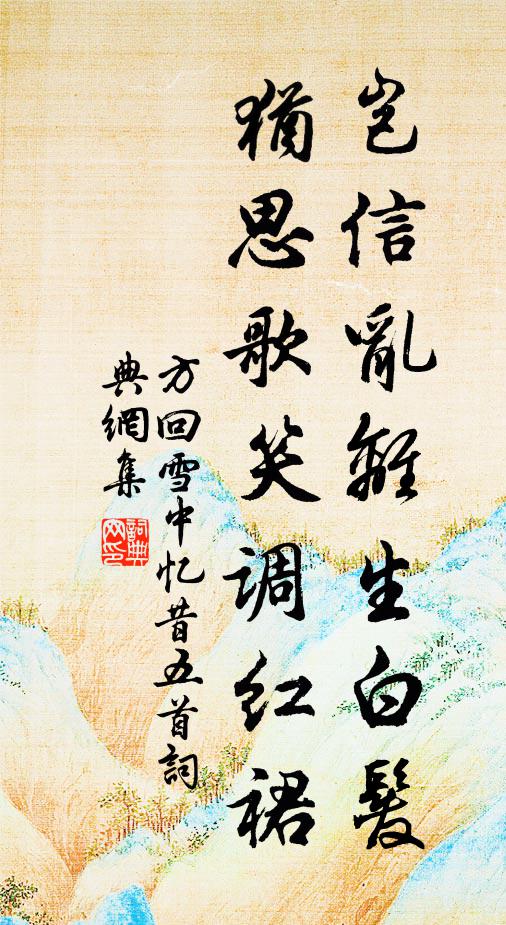 岂信亂離生白髮
猶思歌笑调红裙
方回雪中忆昔五首詞
典網集
詞典
网印